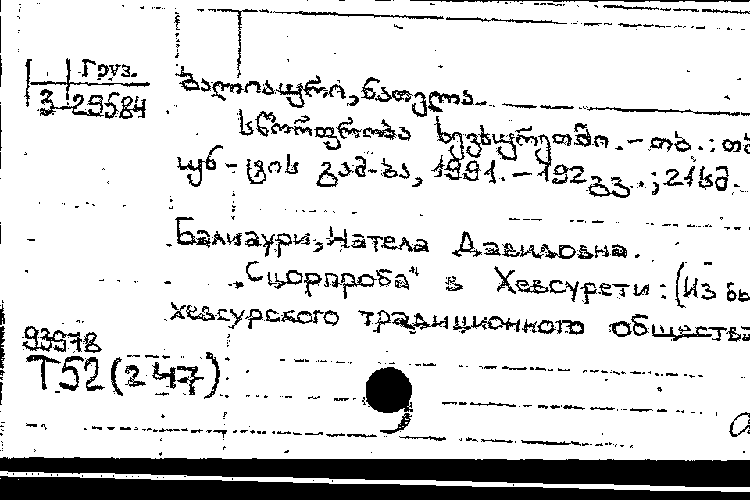 Груз.
3-29584
ბალიაური, ნათელა.
სწორფრობა ხევსურეთში. - თბ.: თბ
უნ-ტის გამ-ბა, 1991. - 192გვ.; 21სმ.
Балиаури, Натела Давидовна.
"Сцорпроба" в Хевсурети: (Из бы
хевсурского традиционного общества
93978
T52(247)